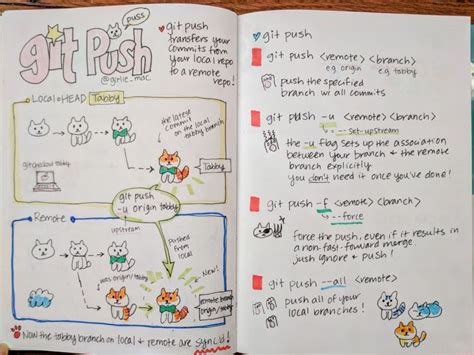 git Push
puss
@girlie_mac
git push
transfers your
commits from
your local repo
to a remote
repo!
Local HEAD Tabby
the latest
commit
on the local
tabby branch
git checkout tabby
Tabby
git push
-u origin tabby
Remote
upstream
pushed
from
local
was origin/tabby
New!
remote branch
origin/tabby
Now the tabby branch on local & remote are sync'd!
git push
git push <remote> <branch>
e.g. origin e.g. tabby
push the specified
branch w/ all commits
git push -u <remote> <branch>
--set-upstream
the -u flag sets up the association
between your branch & the remote
branch explicitly.
you don't need it once you've done!
git push -f <remote> <branch>
--force
Force the push, even if it results in
a non-fast-forward merge.
just ignore & push!
git push --all <remote>
push all of your
local branches!